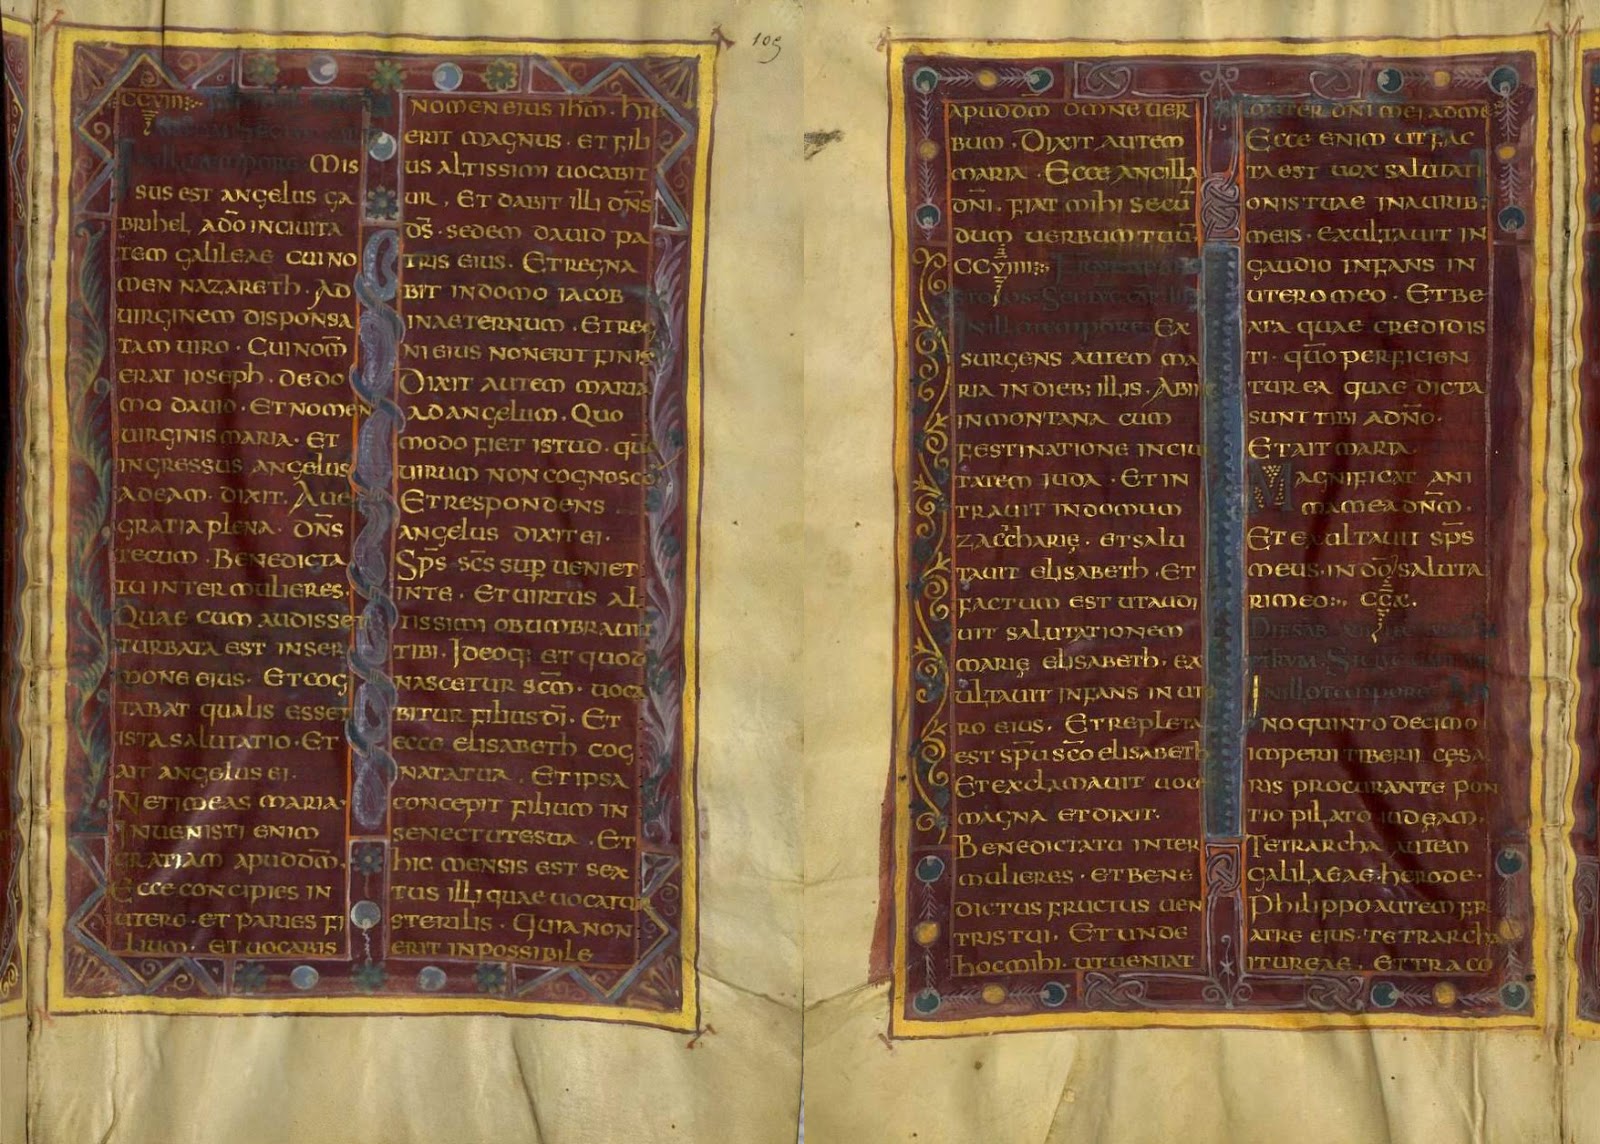 105
CCVIII:
In illo tempore. Mis
sus est angelus ga
brihel, adō in civita
tem galileae cui no
men nazareth. Ad
virginem disponsa
tam viro. Cui nom̄
erat ioseph. de do
mo david. Et nomen
virginis maria. Et
ingressus angelus
ad eam. dixit. Ave
gratia plena. dn̄s
tecum. Benedicta
tu inter mulieres.
Quae cum audisset
turbata est in ser
mone eius. Et cog
tabat qualis esset
ista salutatio. Et
ait angelus ei.
Ne timeas maria
Invenisti enim
gratiam apud dm̄.
Ecce concipies in
utero. et paries fi
lium. et vocabis
nomen eius ihm̄. hic
erit magnus. et fili
us altissimi vocabit
ur. Et dabit illi dn̄s
ds̄. sedem david pa
tris eius. Et regna
bit in domo iacob
in aeternum. Et reg
ni eius non erit finis
Dixit autem maria
ad angelum. Quo
modo fiet istud. qm̄
virum non cognosco
Et respondens
angelus dixit ei.
Sp̄s sc̄s sup veniet
in te. Et virtus al
tissimi obumbravit
tibi. Ideoq; et quod
nascetur scm̄. voca
bitur filius dī. Et
ecce elisabeth cog
nata tua. Et ipsa
concepit filium in
senectute sua. Et
hic mensis est sex
tus illi quae vocatur
sterilis. Quia non
erit inpossibile
apud dm̄ omne ver
bum. Dixit autem
maria. Ecce ancilla
dn̄i. fiat mihi secū
dum verbum tuū.
CCVIIII:
In illo tempore. Ex
surgens autem ma
ria in dieb; illis. Abiit
in montana cum
festinatione in civi
tatem iuda. Et in
travit in domum
zaccharię. et salu
tavit elisabeth. Et
factum est ut audi
vit salutationem
marię elisabeth. ex
ultavit infans in ute
ro eius. Et repleta
est sp̄u sc̄o elisabeth
Et exclamavit voce
magna et dixit.
Benedicta tu inter
mulieres. et bene
dictus fructus ven
tris tui. Et unde
hoc mihi. ut veniat
mater dn̄i mei ad me
Ecce enim ut fac
ta est vox salutati
onis tuae in aurib;
meis. exultavit in
gaudio infans in
utero meo. Et be
ata quae credidis
ti. qūo perficien
tur ea quae dicta
sunt tibi a dn̄o.
Et ait maria.
Magnificat ani
ma mea dn̄m.
Et exultavit sp̄s
meus. in dō saluta
ri meo:. CCX.
In illo tempore.
no quinto decimo
imperii tiberii cęsa
ris procurante pon
tio pilato iudęam.
Tetrarcha autem
galilaeae. herode.
Philippo autem fr
atre eius. tetrarcha
itureae. et traco